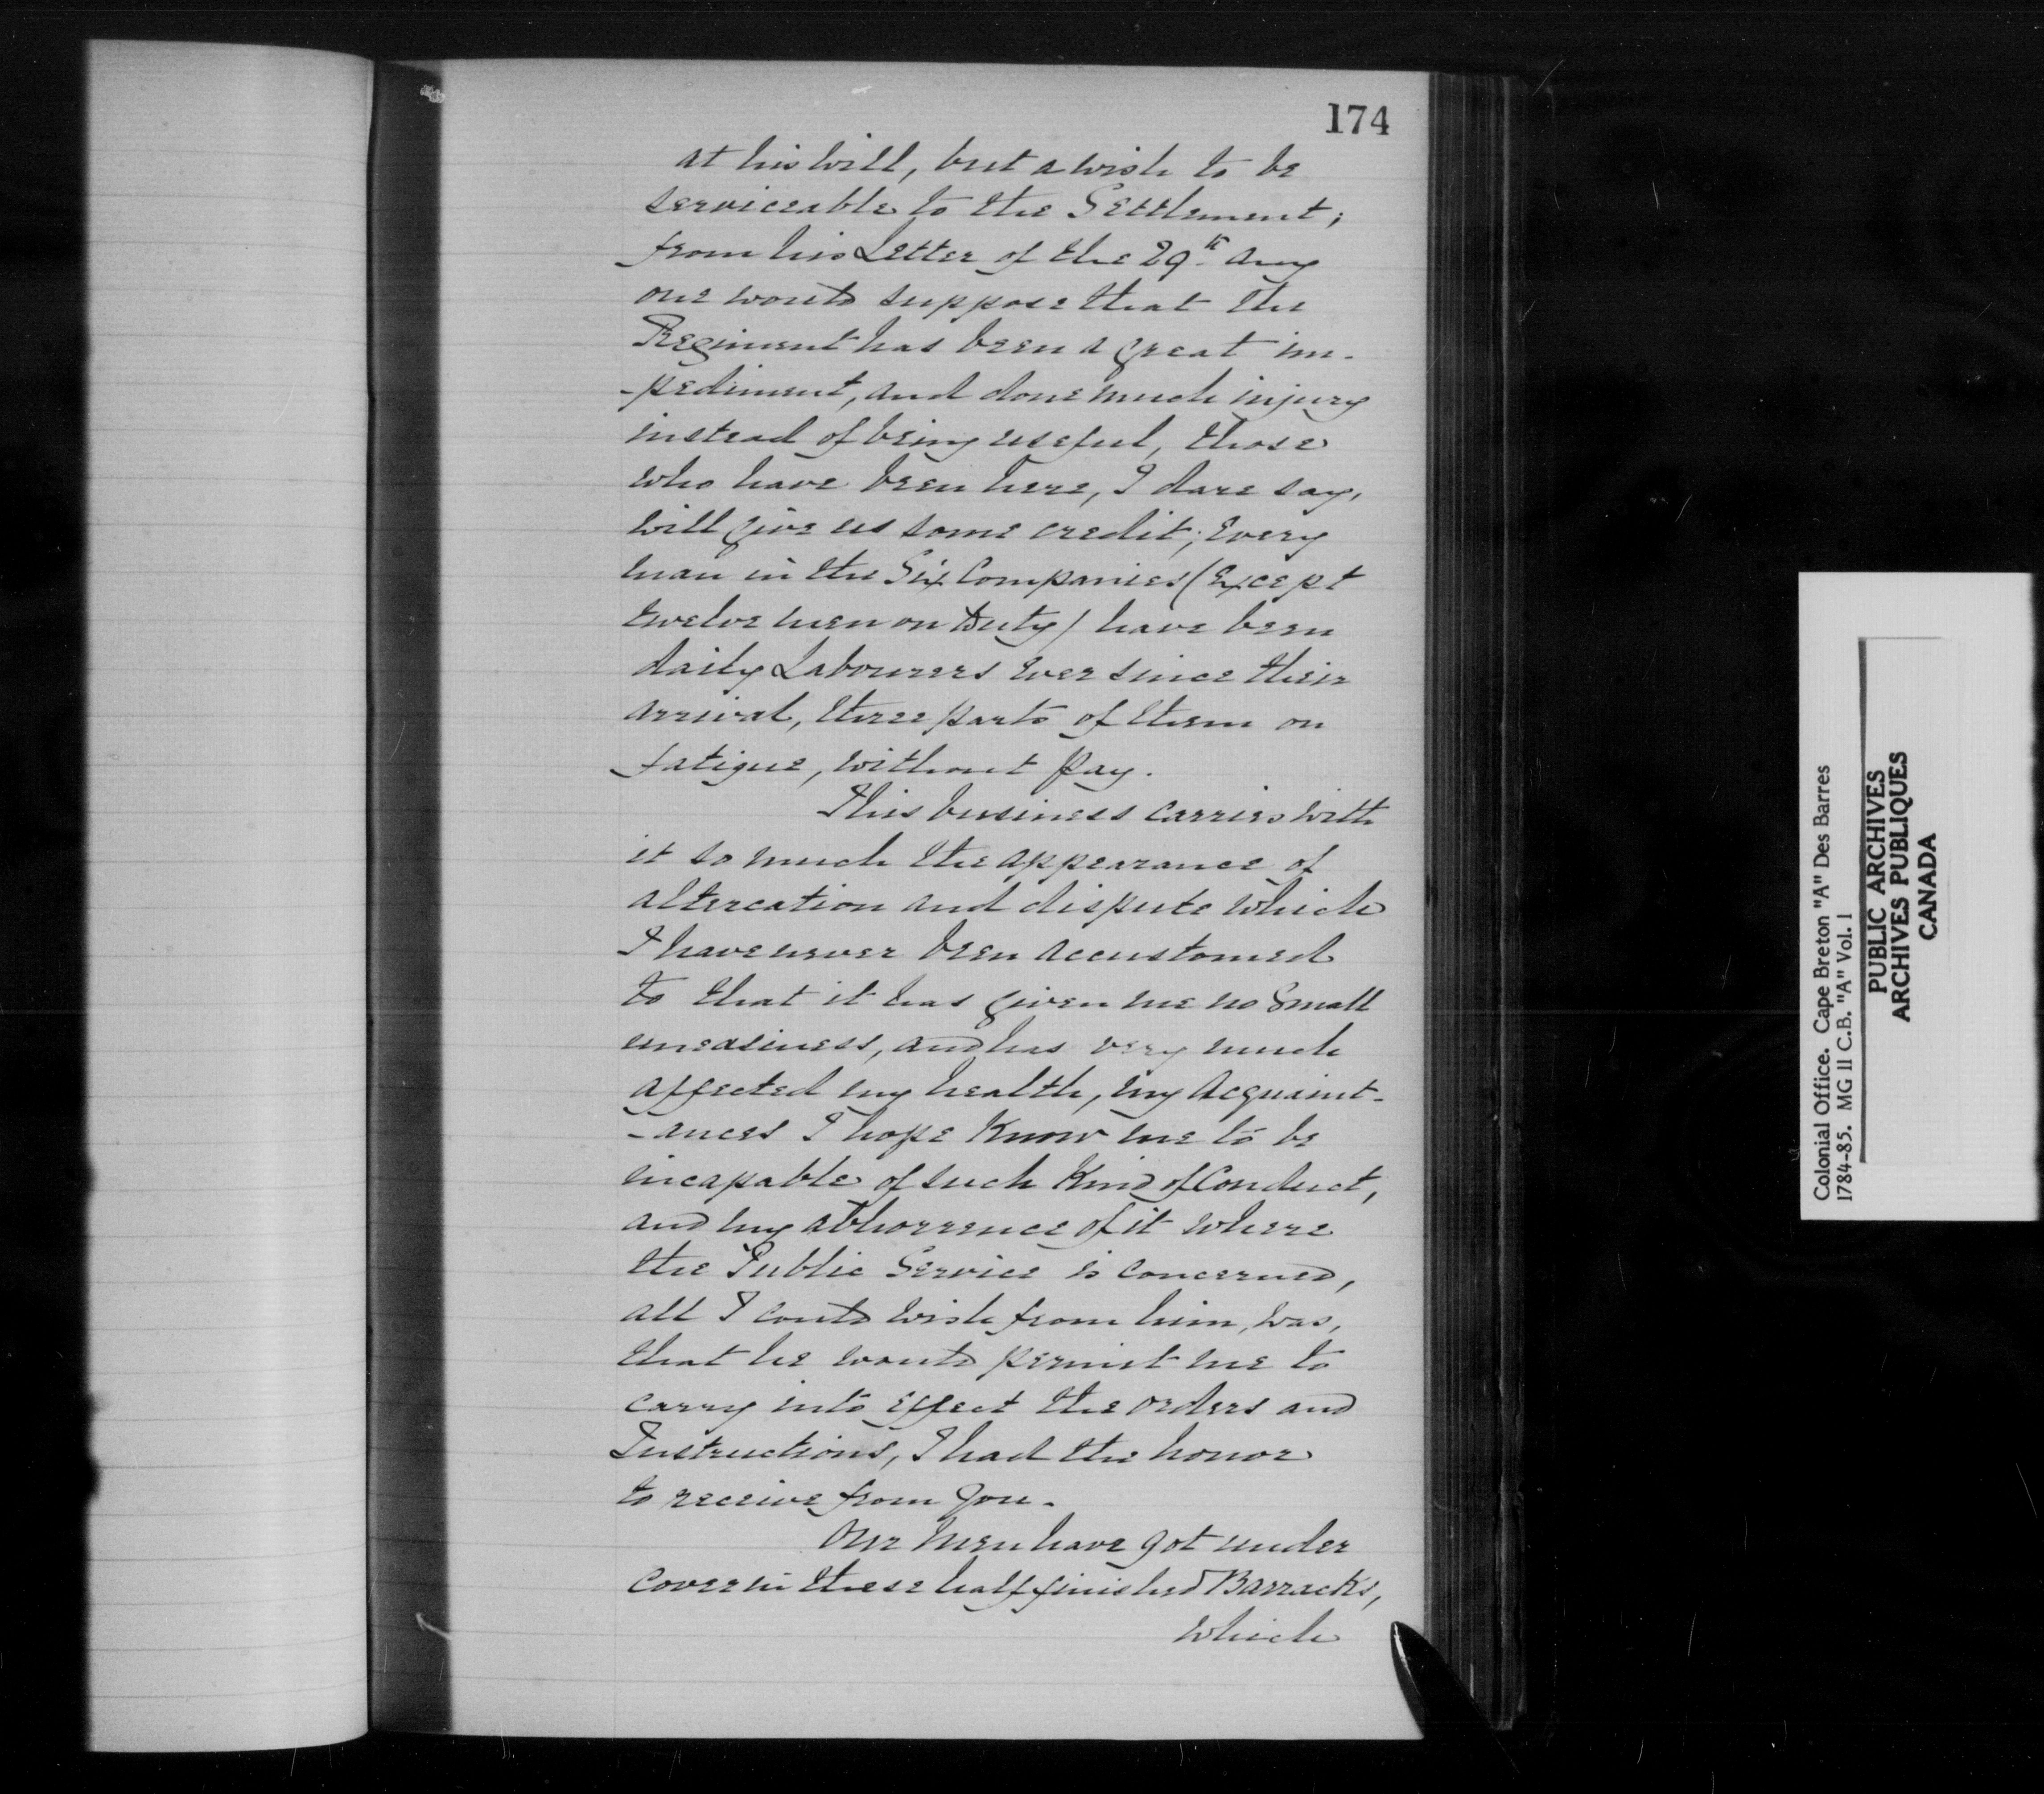 174
at his Will, but a wish to be
serviceable to the Settlement;
from his Letter of the 29th Aug
one would suppose that the
Regiment has been a great im-
-pediment, and done much injury
instead of being useful, those
who have been here, I dare say,
will give us some credit; Every
man in the Six Companies (Except
twelve men on Duty) have been
daily Labourers ever since their
arrival, three parts of them on
fatigue, without pay.
This business carries with
it so much the appearance of
altercation and dispute which
I have never been accustomed
to that it has given me no Small
uneasiness, and has very much
affected my health, my Acquaint-
-ances I hope Know me to be
incapable of such Kind of Conduct,
and my abhorrence of it where
the Public Service is concerned,
all I could wish from him, was,
that he would permit me to
carry into effect the orders and
Instructions, I had the honor
to receive from You.
Our Men have got under
cover in these half finished Barracks,
which
Colonial Office. Cape Breton "A" Des Barres
1784-85. MG 11 C.B. "A" Vol. 1
PUBLIC ARCHIVES
ARCHIVES PUBLIQUES
CANADA